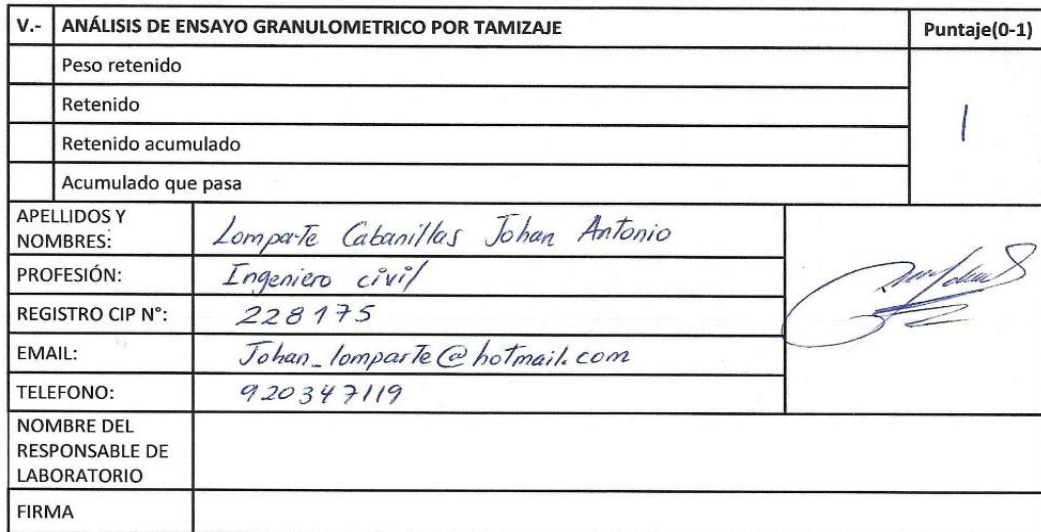 V.- ANÁLISIS DE ENSAYO GRANULOMETRICO POR TAMIZAJE Puntaje(0-1)
Peso retenido
Retenido
1
Retenido acumulado
Acumulado que pasa
APELLIDOS Y NOMBRES: Lomparte Cabanillas Johan Antonio
PROFESIÓN: Ingeniero civil
REGISTRO CIP N°: 228175
EMAIL: Johan_lomparte@hotmail.com
TELEFONO: 920347119
NOMBRE DEL
RESPONSABLE DE
LABORATORIO
FIRMA